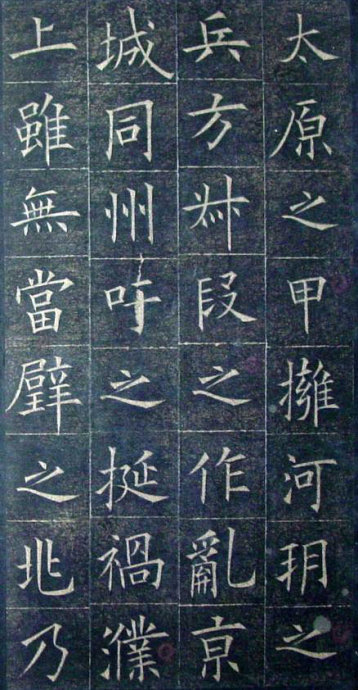 太原之甲擁河朔之
兵方叔段之作亂京
城同州吁之挻禍濮
上雖無當璧之兆乃